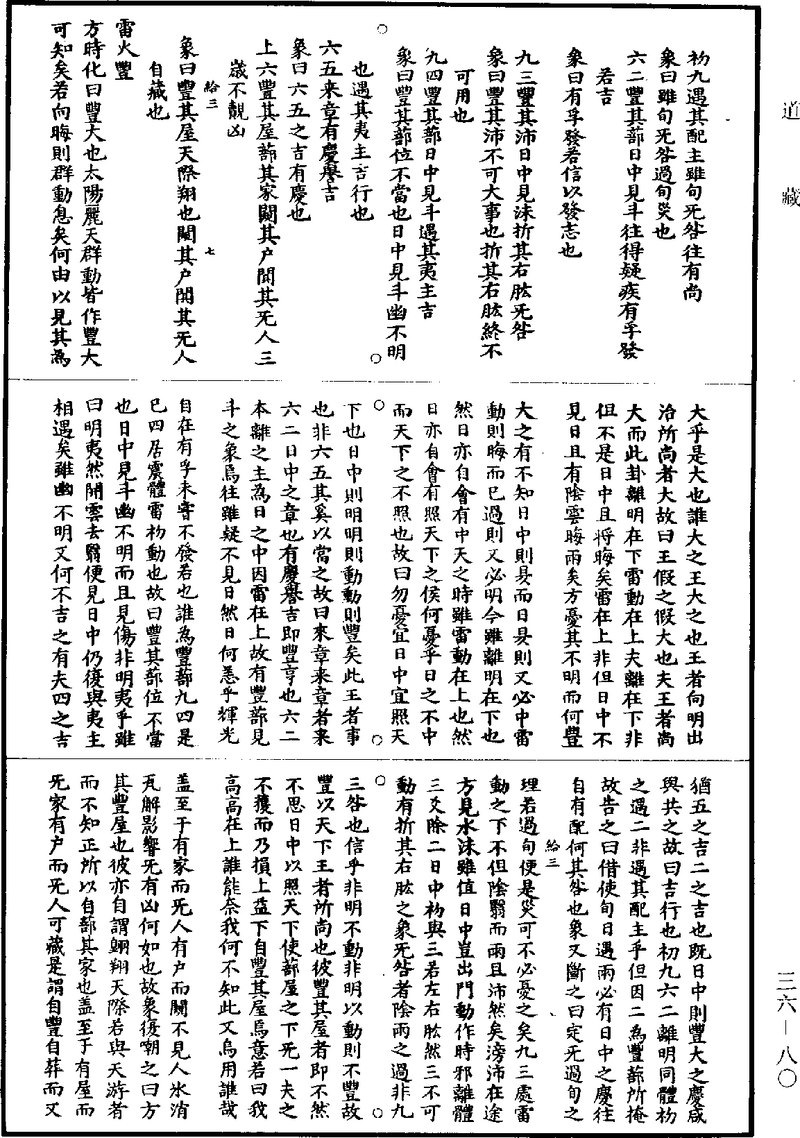 道藏
初九遇其配主雖旬旡咎往有尚
象曰雖旬旡咎過旬災也
六二豐其蔀日中見斗往得疑疾有孚發
若吉
象曰有孚發若信以發志也
九三豐其沛日中見沫折其右肱旡咎
象曰豐其沛不可大事也折其右肱終不
可用也
九四豐其蔀日中見斗遇其夷主吉
象曰豐其蔀位不當也日中見斗幽不明
也遇其夷主吉行也
六五來章有慶譽吉
象曰六五之吉有慶也
上六豐其屋蔀其家闚其户閴其旡人三
歲不覿凶
給三 七
象曰豐其屋天際翔也闚其户閴其旡人
自藏也
雷火豐
方時化曰豐大也太陽麗天群動皆作豐大
可知矣若向晦則群動息矣何由以見其爲
大乎是大也誰大之王大之也王者向明出
治所尚者大故曰王假之假大也夫王者尚
大而此卦離明在下雷動在上夫離在下非
但不是日中且將晦矣雷在上非但日中不
見日且有陰雲晦雨矣方憂其不明而何豐
大之有不知日中則昃而日昃則又必中雷
動則晦而已過則又必明今雖離明在下也
然日亦自會有中天之時雖雷動在上也然
日亦自會有照天下之俟何憂乎日之不中
而天下之不照也故曰勿憂宜日中宜照天
下也日中則明明則動動則豐矣此王者事
也非六五其奚以當之故曰來章來章者來
六二日中之章也有慶譽吉即豐亨也六二
本離之主爲日之中因雷在上故有豐蔀見
斗之象烏往雖疑不見日然日何恙乎輝光
自在有孚未嘗不發若也誰爲豐蔀九四是
已四居震體雷初動也故曰豐其蔀位不當
也日中見斗幽不明而且見傷非明夷乎雖
曰明夷然開雲去翳便見日中仍復與夷主
相遇矣雖幽不明又何不吉之有夫四之吉
猶五之吉二之吉也既日中則豐大之慶咸
與共之故曰吉行也初九六二離明同體初
之遇二非遇其配主乎但因二爲豐蔀所掩
故告之曰借使旬日遇雨必有日中之慶往
自有配何其咎也象又斷之曰定旡過旬之
給三
理若過旬便是災可不必憂之矣九三處雷
動之下不但陰翳而雨且沛然矣滂沛在途
方見水沫雖值日中豈出門動作時邪離體
三爻除二日中初與三若左右肱然三不可
動有折其右肱之象旡咎者陰雨之過非九
三咎也信乎非明不動非明以動則不豐故
豐以天下王者所尚也彼豐其屋者即不然
不思日中以照天下使蔀屋之下旡一夫之
不獲而乃損上益下自豐其屋烏意若曰我
高高在上誰能奈我何不知此又烏用誰哉
蓋至于有家而旡人有户而闚不見人氷消
瓦解影響旡有凶何如也故象復嘲之曰方
其豐屋也彼亦自謂翺翔天際若與天游者
而不知正所以自蔀其家也蓋至于有屋而
旡家有户而旡人可藏是謂自豐自葬而又
三六—八〇